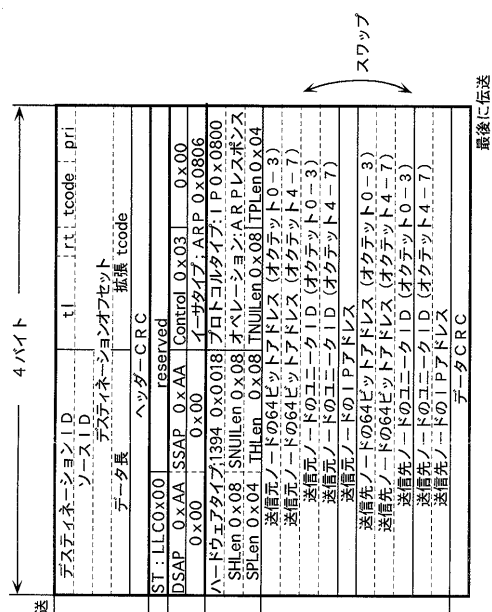 4バイト
デスティネーションID tl rt tcode pri
ソースID
デスティネーションオフセット
データ長 拡張 tcode
ヘッダーCRC
ST:LLC0x00 reserved
DSAP 0xAA SSAP 0xAA Control 0x03 0x00
0x00 0x00 イーサタイプ:ARP 0x0806
ハードウェアタイプ:1394 0x0018 プロトコルタイプ:IP0x0800
SHLen 0x08 SNUILen 0x08 オペレーション:ARPレスポンス
SPLen 0x04 THLen 0x08 TNUILen 0x08 TPLen 0x04
送信元ノードの64ビットアドレス(オクテット0-3)
送信元ノードの64ビットアドレス(オクテット4-7)
送信元ノードのユニークID(オクテット0-3)
送信元ノードのユニークID(オクテット4-7)
送信元ノードのIPアドレス
送信先ノードの64ビットアドレス(オクテット0-3)
送信先ノードの64ビットアドレス(オクテット4-7)
送信先ノードのユニークID(オクテット0-3)
送信先ノードのユニークID(オクテット4-7)
送信先ノードのIPアドレス
データCRC
スワップ
最後に伝送
送